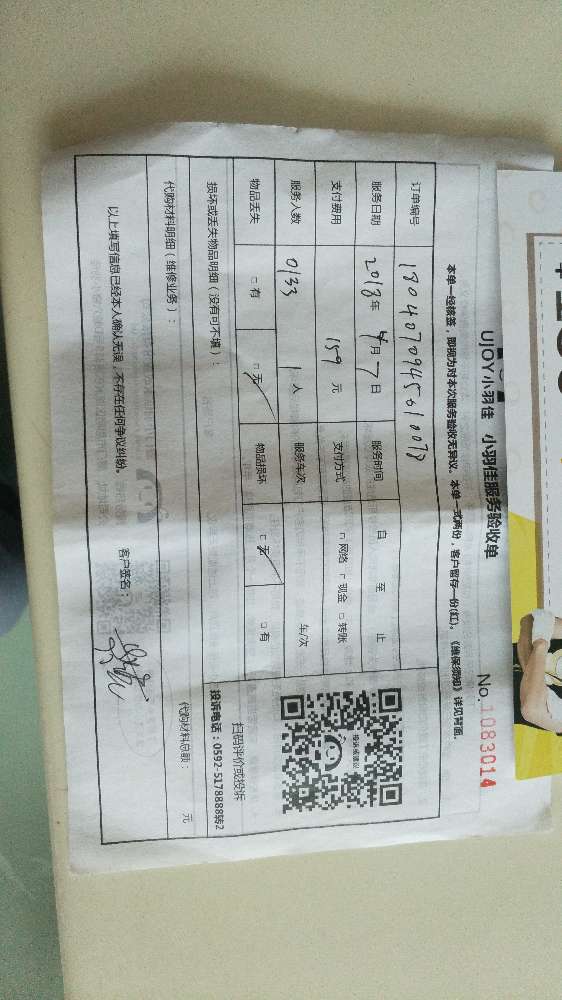 UJOY小羽佳 小羽佳服务验收单
No.1083014
本单一经核签，即视为对本次服务验收无异议。本单一式两份，客户留存一份(红)。《维保须知》详见背面。
订单编号
服务日期 2018年 4月 7日 服务时间 自 至 止
支付费用 159 元 支付方式 □网络 □现金 □转账
服务人数 0133 1人 服务车次 车/次
物品丢失 □有 □无 物品损坏 □无 □有
损坏或丢失物品明细（没有可不填）：
投诉或建议
扫码评价或投诉
投诉电话：0592-5178888转2
代购材料明细（维修业务）： 代购材料总额： 元
以上填写信息已经本人确认无误，不存在任何争议纠纷。 客户签名：